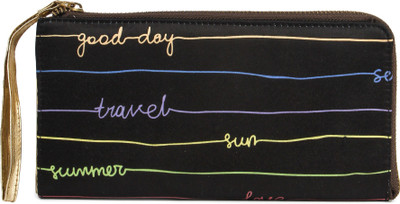 good day
se
travel
sun
summer